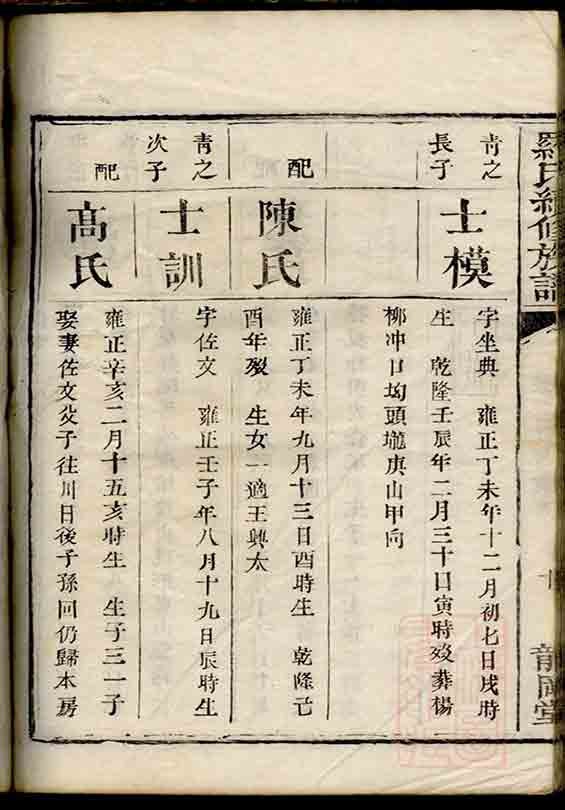 羅氏續修族譜
龍岡堂
青之
長子
士模
字坐典 雍正丁未年十二月初七日戌時
生 乾隆壬辰年二月三十日寅時歿葬楊
柳冲口坳頭壠庚山甲向
配
陳氏
雍正丁未年九月十三日酉時生 乾隆己
酉年歿 生女一適王興太
青之
次子
士訓
字佐文 雍正壬子年八月十九日辰時生
配
高氏
雍正辛亥二月十五亥時生 生子三一子
娶妻佐文父子往川日後子孫回仍歸本房